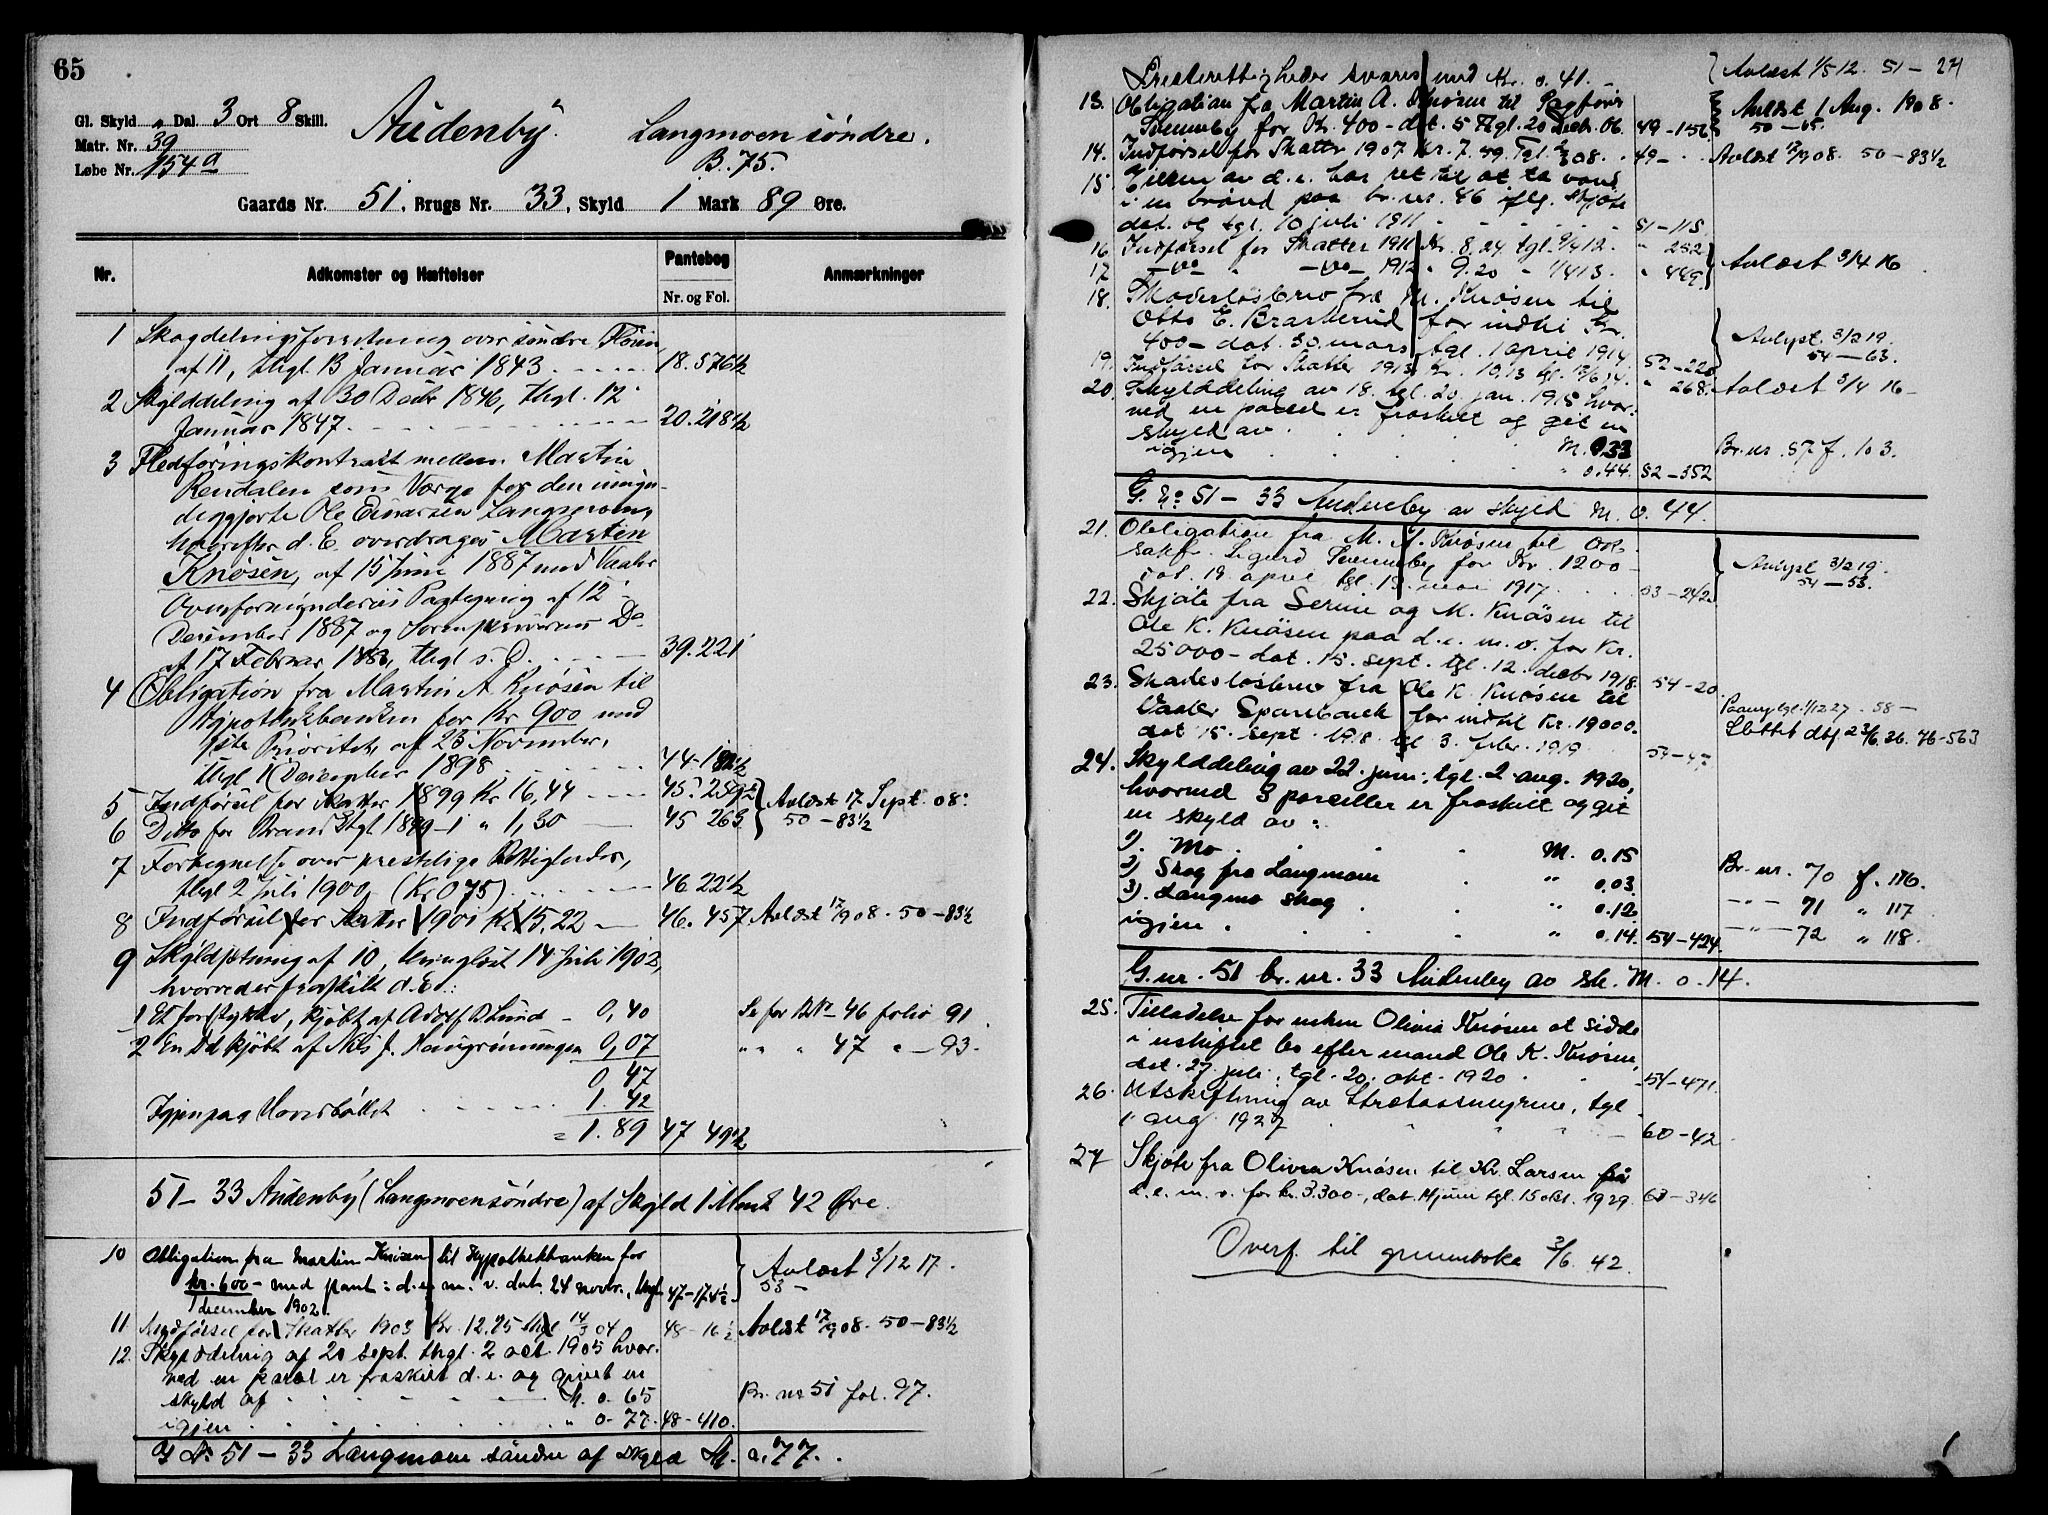 65
Gl. Skyld " Dal. 3 Ort 8 Skill.
Matr. Nr. 39
Løbe Nr. 154 a
Audenby. Langmoen søndre.
B. 75.
Gaards Nr. 51, Brugs Nr. 33, Skyld 1 Mark 89 Øre.
Nr. Adkomster og Hæftelser Pantebog Anmærkninger
Nr. og Fol.
1 Skogdelingsforretning over søndre
af 11, thgl. 13 Januar 1843 18. 576½
2 Skylddeling af 30 Decbr 1846, thgl. 12
Januar 1847 20. 218½
3 Fledføringskontrakt mellem Martin
Rendalen som Værge for den umyn-
diggjorte Ole Einarsen Langmoen,
hvorefter d. E. overdrages Martin
Knøsen, af 15 Juni 1887 med Vaaler
Overformynderies Paategning af 12
December 1887 og De-
af 17 Februar 188, thgl s. D. 39. 221
4 Obligation fra Martin A Knøsen til
Hypothekbanken for Kr 900 med
1ste Prioritet, af 23 November,
thgl 1 December 1898 44-
5 Indførsel for Skatter 1899 Kr 16,44 45. Avlæst 17 Sept. 08.
6 Ditto for Brand Ktgt 1899-1 " 1,30 45 263 50-83½
7 Fortegnelse over prestelige Rettigheder,
thgl 2 Juli 1900 (Kr 0 75) 46 22½
8 Indførsel for Skatter 1901 Kr 15,22 46. 457 Avlæst 17/9 08. 50-83½
9 Skyldsetning af 10, thinglæst 14 Juli 1902,
hvorved er fraskilt d. E.:
1 Et jordstykke, kjøbt af Adolf Lund 0,40 Se for BN 46 folio 91
2 En Do kjøbt af Nils J. Haugrønningen 0,07 " " " 47 " 93.
0 47
Igjen paa Hovedbøllet 1. 42
= 1. 89 47 49½
51-33 Audenby (Langmoen søndre) af Skyld 1 Mark 42 Øre.
10 Obligation fra Martin Knøsen til Hypothekbanken for
kr. 600- med pant i d. e. m. v. dat. 24 novbr., thgl Avlæst 3/12 17.
1 december 1902. 47-174½ 53-
11 Indførsel for Skatter 1903 Kr. 12.75 thgl 14/3 04 48-16½ Avlæst 17/9 08. 50-83½
12. Skylddeling af 20 Sept. thgl. 2 oct. 1905 hvor-
ved en parcel er fraskilt d. e. og givet en
skyld af M. 0. 65 Br. nr 51 fol. 97.
igjen " 0. 77. 48-410.
G No 51-33 Langmoen søndre af Skyld M. 0.77.
rettigheder svares med Kr. 0.41. Avlæst 1/5 12. 51-27
13. Obligation fra Martin A. Knøsen til Sagfører
Svenneby for Kr. 400- dat. 5 tgl. 20 Decbr. 06. 49-156 Avlæst 1 Aug. 1908.
50-65.
14. Indførsel for Skatter 1907 Kr. 7.59. Tgl. 08. 49- Avlæst 17/9 08. 50-83½
15 Eieren av d. e. har ret til at ta vand
i en brønd paa br. nr. 46 iflg. skjøte
dat. og tgl. 10 juli 1911 51-115.
16 Indførsel for Skatter 1911 Kr. 8.24 tgl. 9/4 12. " 252
17 -do- " -do- 1912 " 9.20 " 1/4 13. " 449 Avlæst 3/4 16
18. Skadesløsbrev fra M. Knøsen til
Otto E. Braskerud for indtil Kr.
400- dat. 30. mars tgl. 1 april 1914 52-220 Avlyst 3/2 19.
54-63.
19. Indførsel for Skatter 1913 Kr. 19,13 tgl. 13/6 14. " 268. Avlæst 3/4 16-
20. Skylddeling av 18. tgl. 20. jan. 1915 hvor-
ved en parcel er fraskilt og git en
skyld av M. 0.33 Br. nr. 57 f. 103.
igjen " 0.44. 52-352
G. No 51-33 Audenby av skyld M. 0.44.
21. Obligation fra M. A. Knøsen til Over-
sakf. Sigurd Svenneby for Kr. 1200- Avlyst 3/2 19.
dat. 19 april tgl. 19. mai 1917. 53-242 54-53.
22. Skjøte fra Serine og M. Knøsen til
Ole K. Knøsen paa d. e. m. v. for Kr.
25000- dat. 15. sept. tgl. 12. decbr 1918. 54-20.
23. Skadesløsbrev fra Ole K. Knøsen til
Vaaler Sparebank for indtil Kr. 19000. Paategn. tgl. 1/12 27. 58-
dat 15. sept. 1918 tgl 3. febr. 1919 54-47 Slettet dbf 23/6 36. 76-563
24. Skylddeling av 22. juni, tgl. 2. aug. 1920,
hvorved 3 parceller er fraskilt og git
en skyld av:
1). Mo M. 0.15 Br. nr. 70 f. 116.
2) Skog fra Langmoen " 0.03. -"- 71 " 117
3). Langmo skog " 0.12 -"- 72 " 118.
igjen " 0.14. 54-424.
G. nr. 51 br. nr. 33 Audenby av sk. M. 0.14.
25. Tilladelse for enken Olivia Knøsen at sidde
i uskiftet bo efter mand Ole K. Knøsen,
dat. 27. juli, tgl. 20. okt. 1920 54-471.
26. Utskiftning av Strætaasmyrene, tgl.
1. aug. 1927 60-42
27 Skjøte fra Olivia Knøsen til Kr. Larsen på
d. e. m. v. for kr. 3.300-, dat. 14 juni tgl. 15 okt. 1929. 63-346
Overf. til grunnboka 3/6. 42.